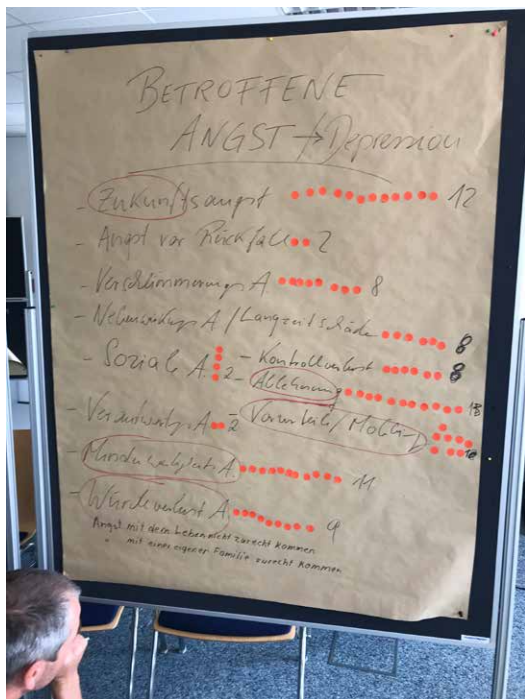 BETROFFENE
ANGST → Depression
- Zukunftsangst 12
- Angst vor Rückfall 2
- Verschlimmerungs A 8
- Nebenwirkungs A / Langzeitschäden 8
- Soziale A. 2
- Kontrollverlust 8
- Ablehnung
- Verantwortgs A. 2
- Vorurteile / Mobbing
- Minderwertigkeits A. 11
- Würdeverlust A. 9
Angst mit dem Leben nicht zurecht kommen
" mit eines eigener Familie zurecht kommen